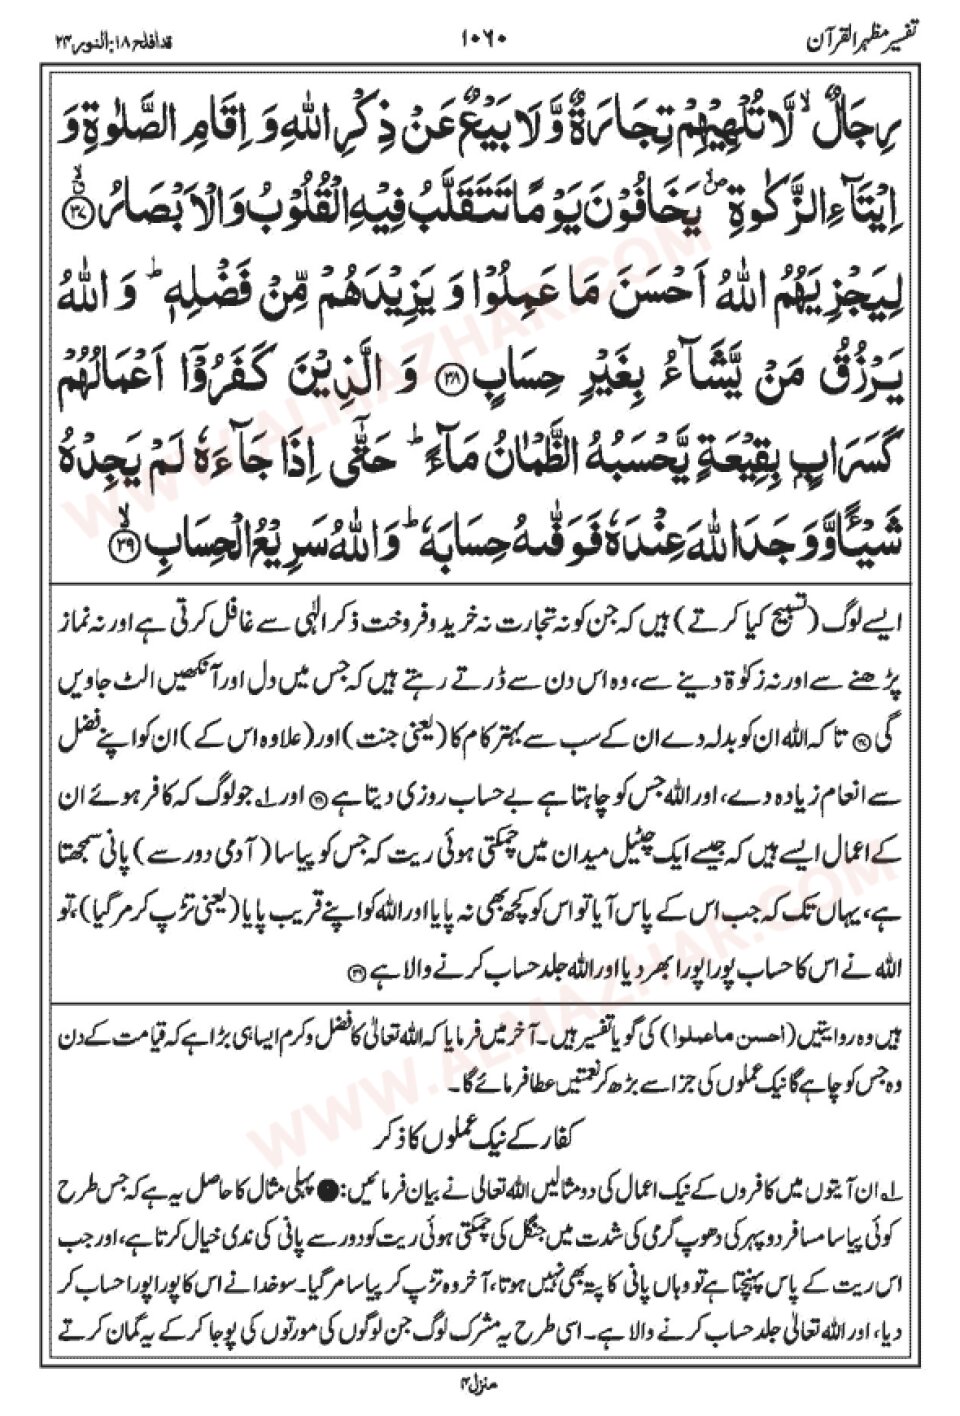 تفسیر مظہر القرآن ۱۰۶۰ قد افلح ۱۸: النور ۲۴
رِجَالٌ ۙ لَّا تُلْهِيْهِمْ تِجَارَةٌ وَّلَا بَيْعٌ عَنْ ذِكْرِ اللّٰهِ وَ اِقَامِ الصَّلٰوةِ وَ
اِيْتَآءِ الزَّكٰوةِ ۪ۙ يَخَافُوْنَ يَوْمًا تَتَقَلَّبُ فِيْهِ الْقُلُوْبُ وَالْاَبْصَارُ ۙ﴿۳۷﴾
لِيَجْزِيَهُمُ اللّٰهُ اَحْسَنَ مَا عَمِلُوْا وَ يَزِيْدَهُمْ مِّنْ فَضْلِهٖ ؕ وَ اللّٰهُ
يَرْزُقُ مَنْ يَّشَآءُ بِغَيْرِ حِسَابٍ ﴿۳۸﴾ وَ الَّذِيْنَ كَفَرُوْۤا اَعْمَالُهُمْ
كَسَرَابٍۭ بِقِيْعَةٍ يَّحْسَبُهُ الظَّمْاٰنُ مَآءً ؕ حَتّٰۤى اِذَا جَآءَهٗ لَمْ يَجِدْهُ
شَيْـًٔا وَّ وَجَدَ اللّٰهَ عِنْدَهٗ فَوَفّٰىهُ حِسَابَهٗ ؕ وَاللّٰهُ سَرِيْعُ الْحِسَابِ ۙ﴿۳۹﴾
ایسے لوگ (تسبیح کیا کرتے) ہیں کہ جن کو نہ تجارت نہ خرید و فروخت ذکر الٰہی سے غافل کرتی ہے اور نہ نماز
پڑھنے سے اور نہ زکوٰۃ دینے سے، وہ اس دن سے ڈرتے رہتے ہیں کہ جس میں دل اور آنکھیں الٹ جاویں
گی ﴿۳۷﴾ تا کہ اللہ ان کو بدلہ دے ان کے سب سے بہتر کام کا (یعنی جنت) اور (علاوہ اس کے) ان کو اپنے فضل
سے انعام زیادہ دے، اور اللہ جس کو چاہتا ہے بے حساب روزی دیتا ہے ﴿۳۸﴾ اور ۱؎ جو لوگ کہ کافر ہوئے ان
کے اعمال ایسے ہیں کہ جیسے ایک چٹیل میدان میں چمکتی ہوئی ریت کہ جس کو پیاسا (آدمی دور سے) پانی سمجھتا
ہے، یہاں تک کہ جب اس کے پاس آیا تو اس کو کچھ بھی نہ پایا اور اللہ کو اپنے قریب پایا (یعنی تڑپ کر مر گیا)، تو
اللہ نے اس کا حساب پورا پورا بھر دیا اور اللہ جلد حساب کرنے والا ہے ﴿۳۹﴾
ہیں وہ روایتیں (احسن ما عملوا) کی گویا تفسیر ہیں۔ آخر میں فرمایا کہ اللہ تعالیٰ کا فضل و کرم ایسا ہی بڑا ہے کہ قیامت کے دن
وہ جس کو چاہے گا نیک عملوں کی جزا سے بڑھ کر نعمتیں عطا فرمائے گا۔
کفار کے نیک عملوں کا ذکر
۱؎ ان آیتوں میں کافروں کے نیک اعمال کی دو مثالیں اللہ تعالیٰ نے بیان فرمائیں: پہلی مثال کا حاصل یہ ہے کہ جس طرح
کوئی پیاسا مسافر دوپہر کی دھوپ گرمی کی شدت میں جنگل کی چمکتی ہوئی ریت کو دور سے پانی کی ندی خیال کرتا ہے، اور جب
اس ریت کے پاس پہنچتا ہے تو وہاں پانی کا پتہ بھی نہیں ہوتا، آخر وہ تڑپ کر پیاسا مر گیا۔ سو خدا نے اس کا پورا پورا حساب کر
دیا، اور اللہ تعالیٰ جلد حساب کرنے والا ہے۔ اسی طرح یہ مشرک لوگ جن لوگوں کی مورتوں کی پوجا کر کے یہ گمان کرتے
منزل ۴
WWW.ALMAZHAR.COM
WWW.ALMAZHAR.COM